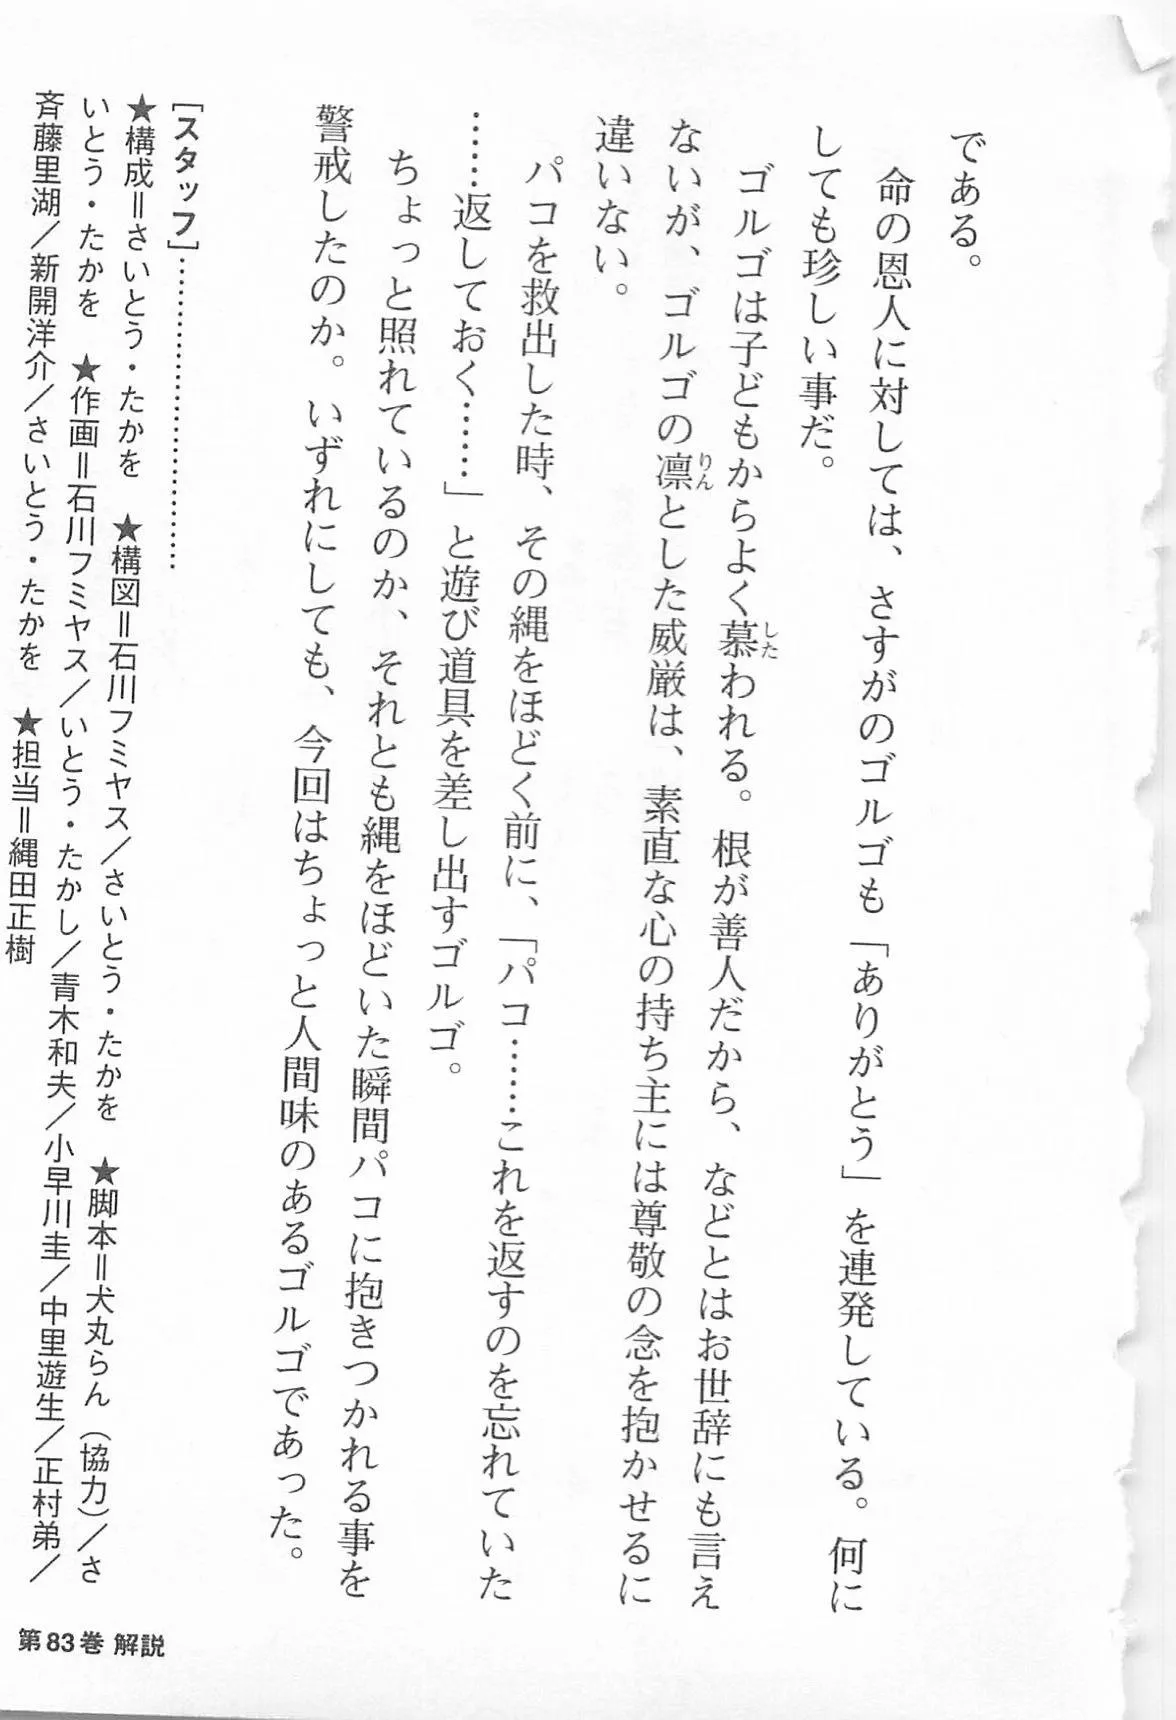 である。
命の恩人に対しては、さすがのゴルゴも「ありがとう」を連発している。何に
しても珍しい事だ。
ゴルゴは子どもからよく慕われる。根が善人だから、などとはお世辞にも言え
ないが、ゴルゴの凛とした威厳は、素直な心の持ち主には尊敬の念を抱かせるに
違いない。
パコを救出した時、その縄をほどく前に、「パコ……これを返すのを忘れていた
……返しておく……」と遊び道具を差し出すゴルゴ。
ちょっと照れているのか、それとも縄をほどいた瞬間パコに抱きつかれる事を
警戒したのか。いずれにしても、今回はちょっと人間味のあるゴルゴであった。
［スタッフ］……………………………
★構成＝さいとう・たかを　★構図＝石川フミヤス／さいとう・たかを　★脚本＝犬丸らん（協力）／さ
いとう・たかを　★作画＝石川フミヤス／いとう・たかし／青木和夫／小早川圭／中里遊生／正村弟／
斉藤里湖／新開洋介／さいとう・たかを　★担当＝縄田正樹
第83巻 解説